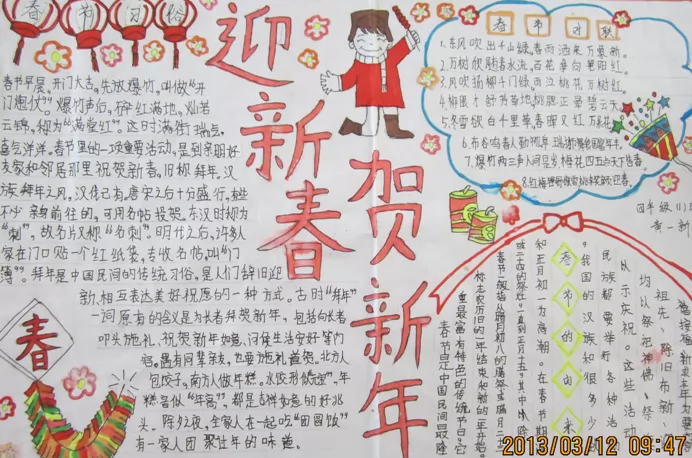 春节习俗
迎新春
贺新年
春节早晨,开门大吉,先放爆竹,叫做“开
门炮仗”。爆竹声后,碎红满地,灿若
云锦,称为“满堂红”。这时满街瑞气,
喜气洋洋。春节里的一项重要活动,是到亲朋好
友家和邻居那里祝贺新春,旧称拜年。汉
族拜年之风,汉代已有。唐宋之后十分盛行,有些
不必亲身前往的,可用名帖投贺。东汉时称为
“刺”,故名片又称“名刺”。明代之后,许多人
家在门口贴一个红纸袋,专收名帖,叫“门
簿”。拜年是中国民间的传统习俗,是人们辞旧迎
新、相互表达美好祝愿的一种方式。古时“拜年”
一词原有的含义是为长者拜贺新年,包括向长者
叩头施礼、祝贺新年如意、问候生活安好等内
容。遇有同辈亲友,也要施礼道贺。北方人
包饺子,南方人做年糕。水饺形似“元宝”,年
糕音似“年高”,都是吉祥如意的好兆
头。除夕夜,全家人在一起吃“团圆饭”
有一家人团聚过年的味道。
春
春节对联
1.东风吹出千山绿,春雨洒来万象新。
2.万树欣随春水流,百花争向艳阳红。
3.风吹杨柳千门绿,雨泣桃花万树红。
5.冬雪欲白千里草,春雨又红万家花。
7.爆竹两三声人间是岁,梅花四五点天下皆春。
四年级
黄一新
春节的由来
春节是中国民间最隆
重最富有特色的传统节日,它
标志农历旧的一年结束和新的一年开始。
春节一般指从腊月初八的腊祭或腊月二十三
或二十四的祭灶,一直到正月十五,其中以除夕
和正月初一为高潮。在春节期
间,我国的汉族和很多少
民族都要举行各种活动
以示庆祝。这些活动
均以祭祀神佛、祭
祖先、除旧布新、
2013/03/12 09:47